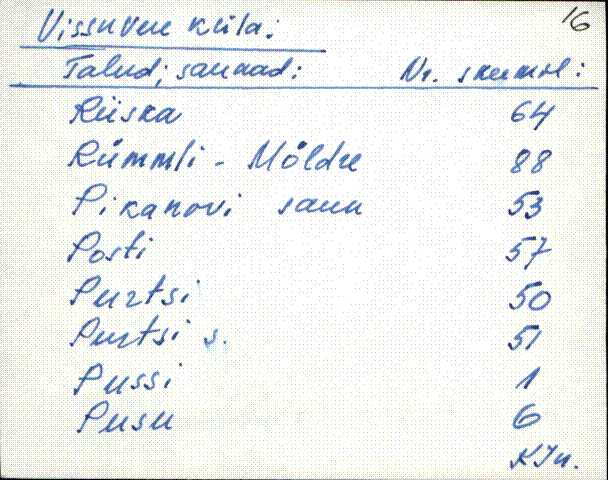 16
Vissuvere küla:
Talud; saunad: Nr. skeemil:
Rüska 64
Rümmli - Möldre 88
Pikanovi saun 53
Posti 57
Purtsi 50
Purtsi s. 51
Pussi 1
Pusu 6